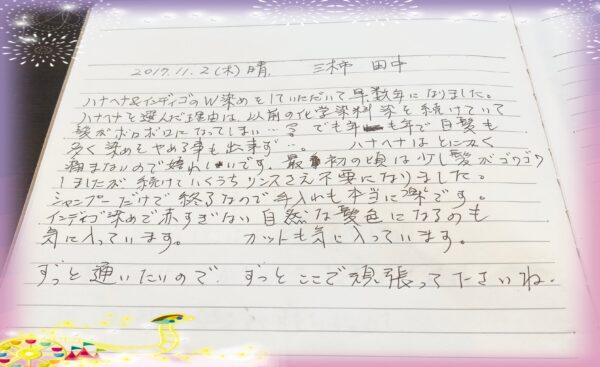 2017.11.2(木)晴. 三柿 田中
ハナヘナ&インディゴのW染めをしていただいて早、数年になりました。
ハナヘナを選んだ理由は、以前の化学染料染を続けていて
髪がボロボロになってしまい…? でも年も年で白髪も
多く染めをやめる事も出来ず…。 ハナヘナはとにかく
痛まないので嬉しいです。最初の頃は少し髪がゴワゴワ
しましたが続けていくうちリンスさえ不要になりました。
シャンプーだけで終るなので手入れも本当に楽です。
インディゴ染めで赤すぎない自然な髪色になるのも
気に入っています。 カットも気に入っています。
ずっと通いたいので、ずっとここで頑張って下さいね.